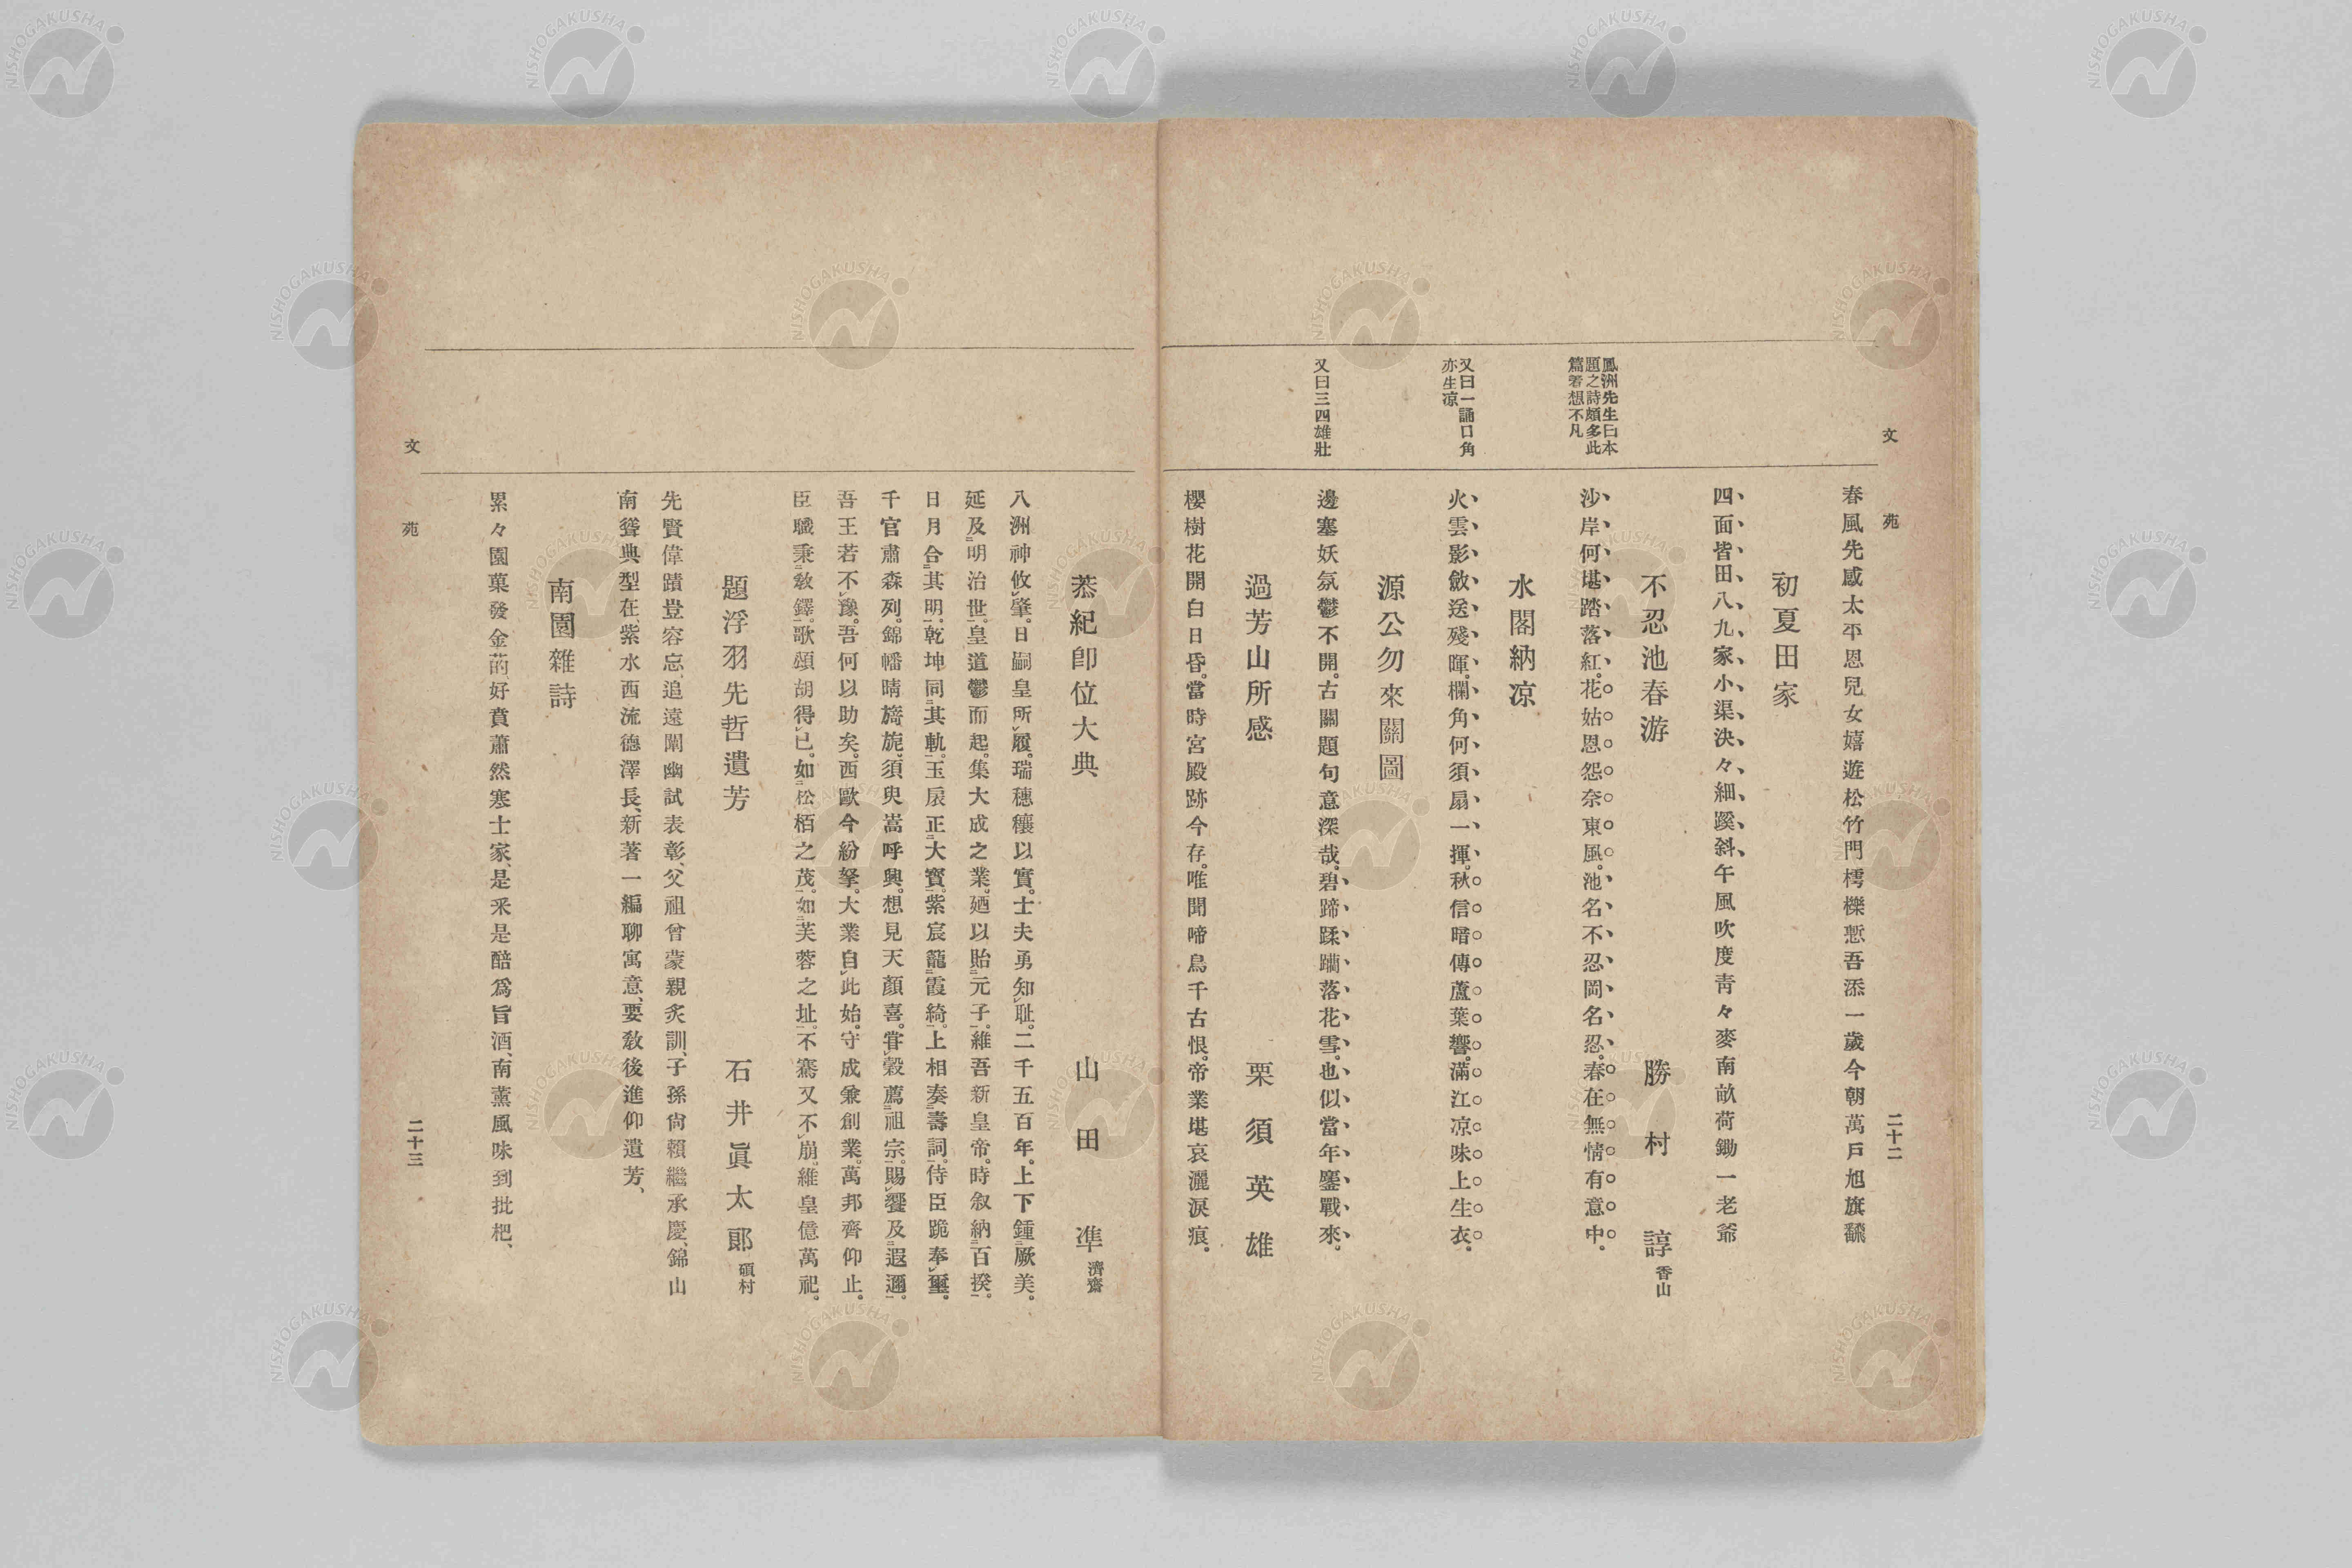 文苑
二十二
春風先感太平恩兒女嬉遊松竹門樗櫟慙吾添一歲今朝萬戶旭旗飜
初夏田家
四面皆田八九家小渠決々細蹊斜午風吹度靑々麥南畝荷鋤一老爺
鳳洲先生曰本
題之詩頗多此
篇著想不凡
不忍池春游
勝村諄 香山
沙岸何堪踏落紅。花姑恩怨奈東風。池名不忍岡名忍。春在無情有意中。
水閣納凉
又曰一誦口角
亦生凉
火雲影斂送殘暉。欄角何須扇一揮。秋信暗傳蘆葉響。滿江凉味上生衣。
源公勿來關圖
又曰三四雄壯
邊塞妖氛鬱不開。古關題句意深哉。碧蹄蹂躪落花雪。也似當年鏖戰來。
過芳山所感
栗須英雄
櫻樹花開白日昏。當時宮殿跡今存。唯聞啼鳥千古恨。帝業堪哀灑淚痕。
恭紀卽位大典
山田準 濟齋
八洲神攸レ肇。日嗣皇所レ履。瑞穗穰以實。士夫勇知レ耻。二千五百年。上下鍾二厥美。
延及二明治世一。皇道鬱而起。集大成之業。廼以貽二元子一。維吾新皇帝。時敍納二百揆一。
日月合二其明一。乾坤同二其軌一。玉扆正二大寶一。紫宸籠二霞綺一。上相奏二壽詞一。侍臣跪奉レ璽。
千官肅森列。錦幡晴旖旎。須臾嵩呼興。想見天顏喜。甞レ穀薦二祖宗一。賜レ饗及二遐邇一。
吾王若不レ豫。吾何以助矣。西歐今紛拏。大業自レ此始。守成兼創業。萬邦齊仰止。
臣職秉二敎鐸一。歌頌胡得レ已。如二松栢之茂一。如二芙蓉之址一。不騫又不レ崩。維皇億萬祀。
題浮羽先哲遺芳
石井眞太郞 碩村
先賢偉蹟豈容忘、追遠闡幽試表彰、父祖曾蒙親炙訓、子孫尙賴繼承慶、錦山
南聳典型在、紫水西流德澤長、新著一編聊寓意、要敎後進仰遺芳、
南園雜詩
累々園菓發金的、好賁蕭然寒士家、是釆是醅爲旨酒、南薰風味到批杷、
文苑
二十三
NISHOGAKUSHA